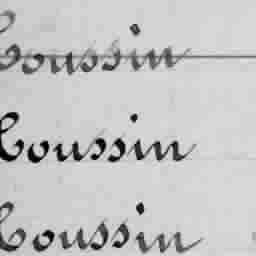 Coussin
Coussin
Coussin